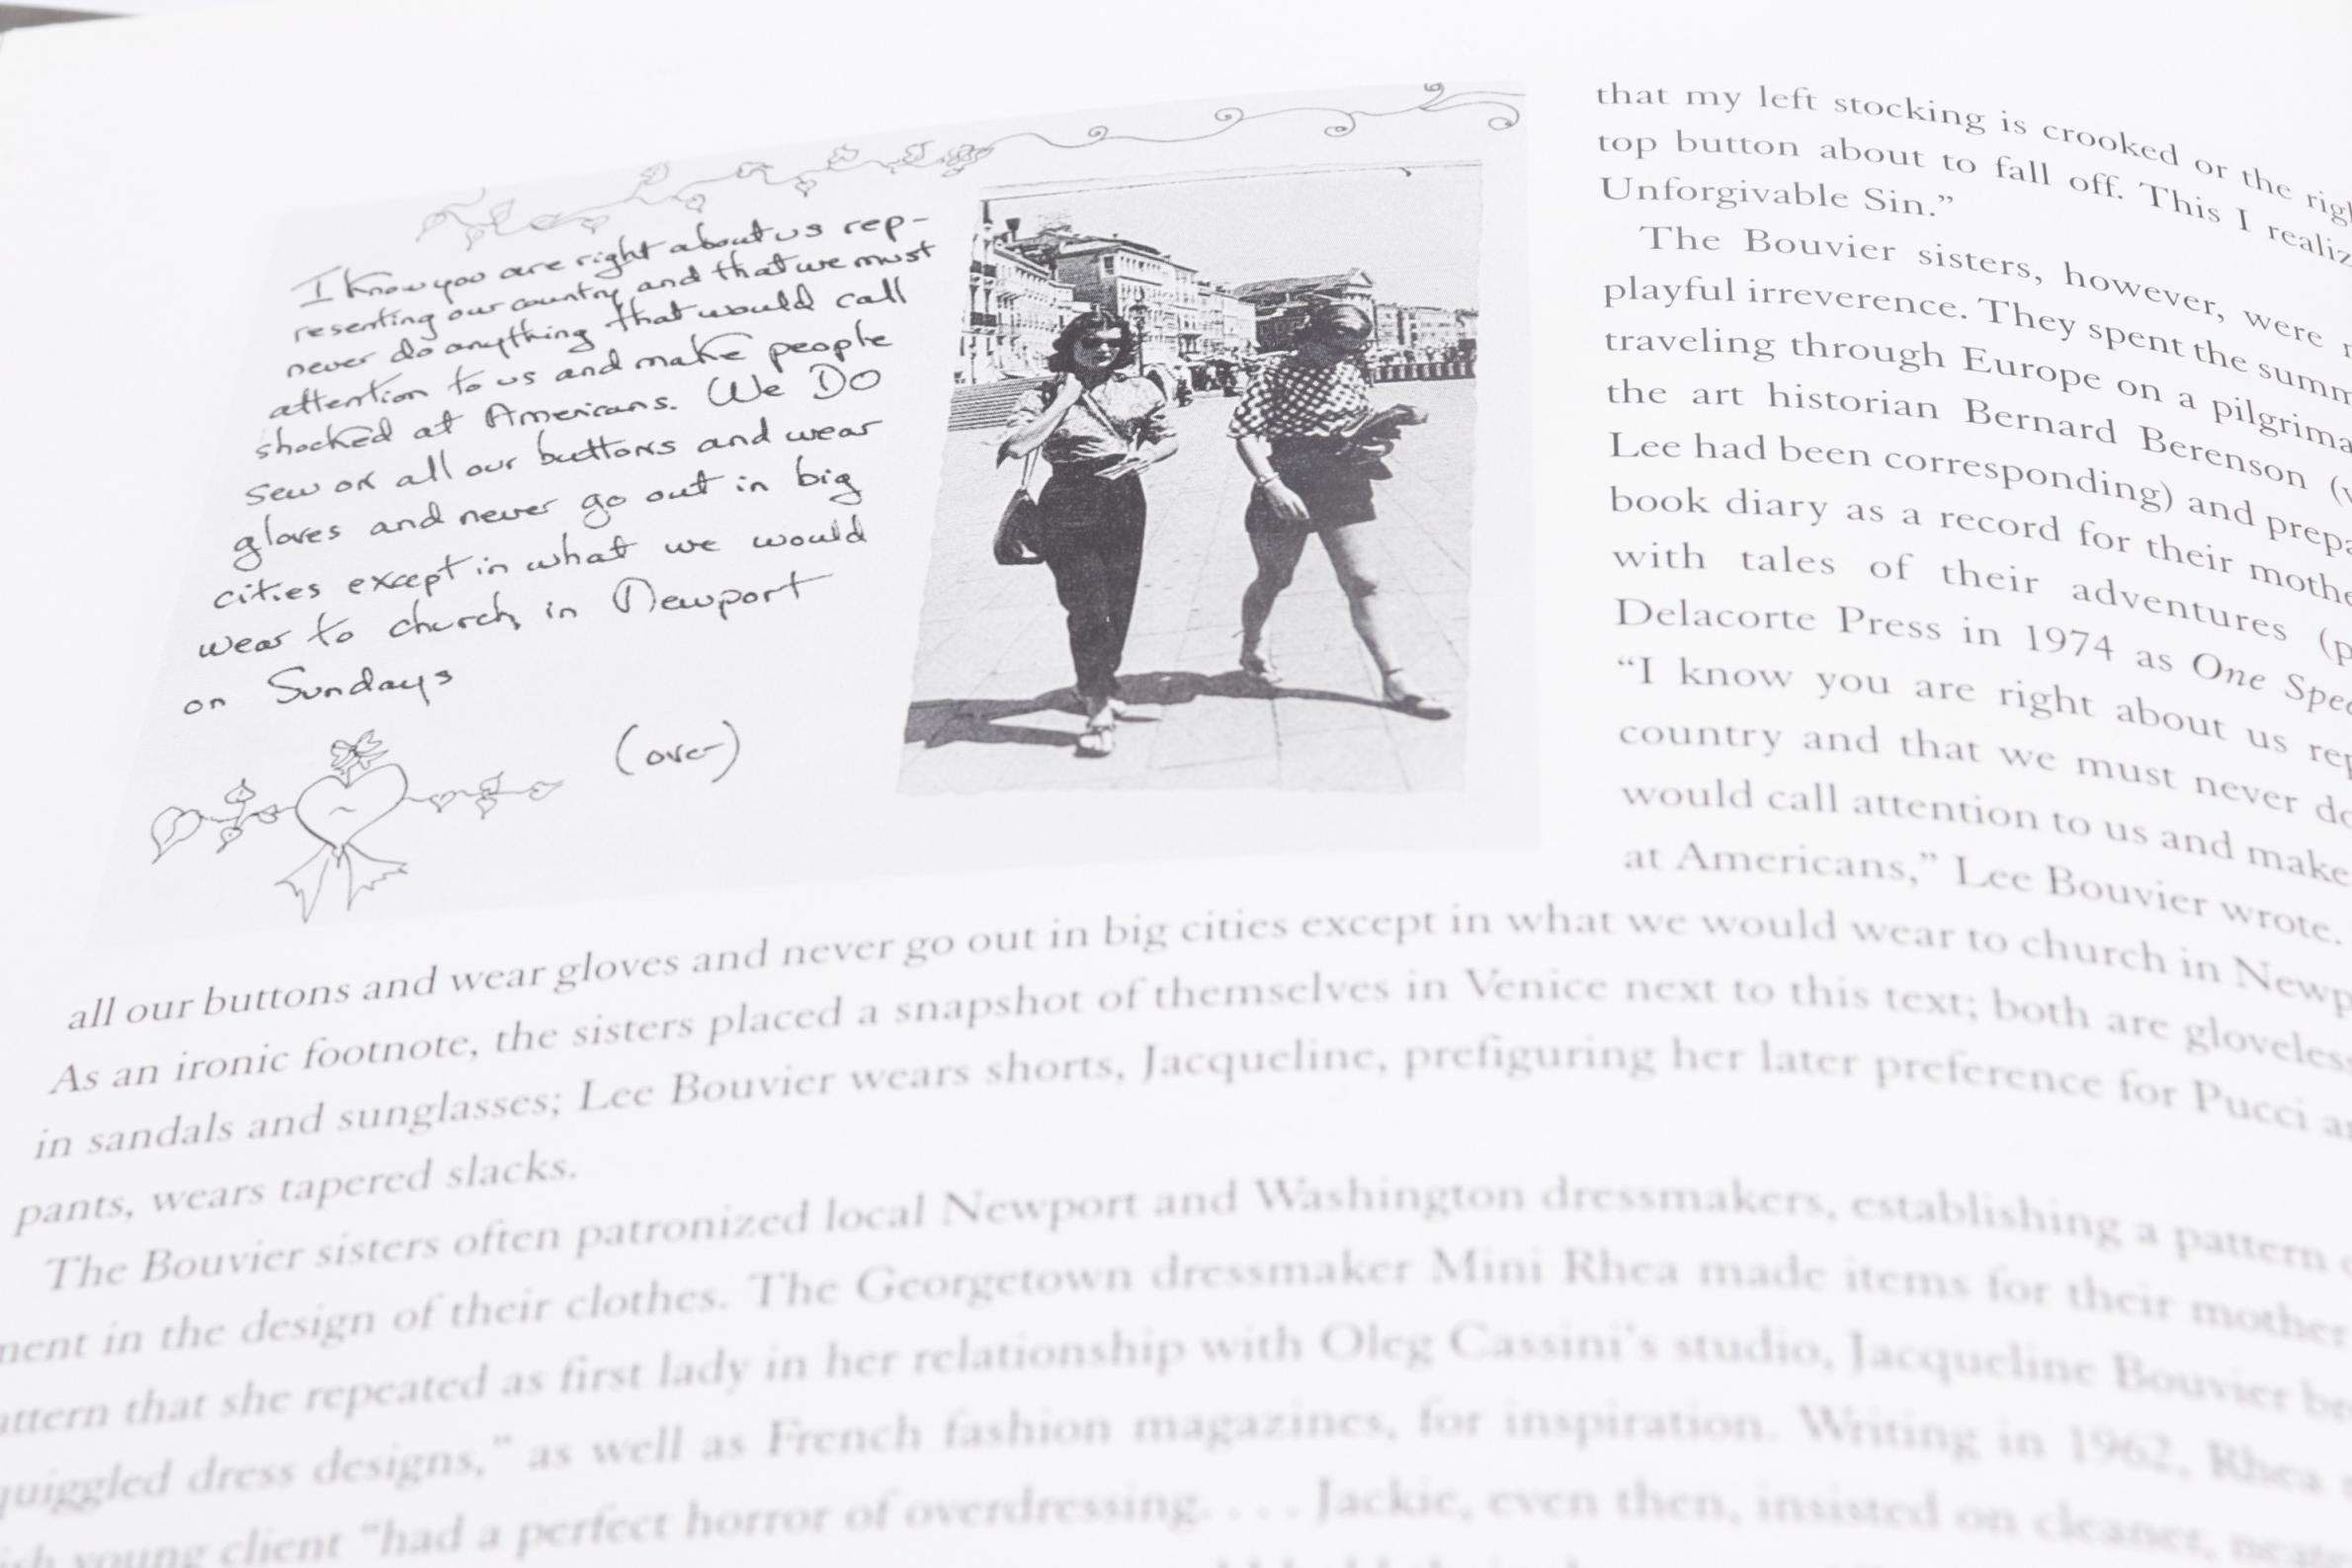 I know you are right about us rep-
resenting our country and that we must
never do anything that would call
attention to us and make people
shocked at Americans. We DO
sew on all our buttons and wear
gloves and never go out in big
cities except in what we would
wear to church in Newport
on Sundays
(over)
that my left stocking is crooked or the
top button about to fall off. This I
Unforgivable Sin.”
The Bouvier sisters, however, were
playful irreverence. They spent the
traveling through Europe on a
the art historian Bernard Berenson
Lee had been corresponding) and
book diary as a record for their
with tales of their adventures
Delacorte Press in 1974 as One
“I know you are right about us
country and that we must never
would call attention to us and make
at Americans,” Lee Bouvier wrote.
all our buttons and wear gloves and never go out in big cities except in what we would wear to church in
As an ironic footnote, the sisters placed a snapshot of themselves in Venice next to this text; both are
in sandals and sunglasses; Lee Bouvier wears shorts, Jacqueline, prefiguring her later preference for Pucci
pants, wears tapered slacks.
The Bouvier sisters often patronized local Newport and Washington dressmakers, establishing a pattern
ment in the design of their clothes. The Georgetown dressmaker Mini Rhea made items for their mother
attern that she repeated as first lady in her relationship with Oleg Cassini's studio, Jacqueline Bouvier
quiggled dress designs,” as well as French fashion magazines, for inspiration. Writing in 1962, Rhea
ish young client “had a perfect horror of overdressing. . . . Jackie, even then, insisted on cleaner,